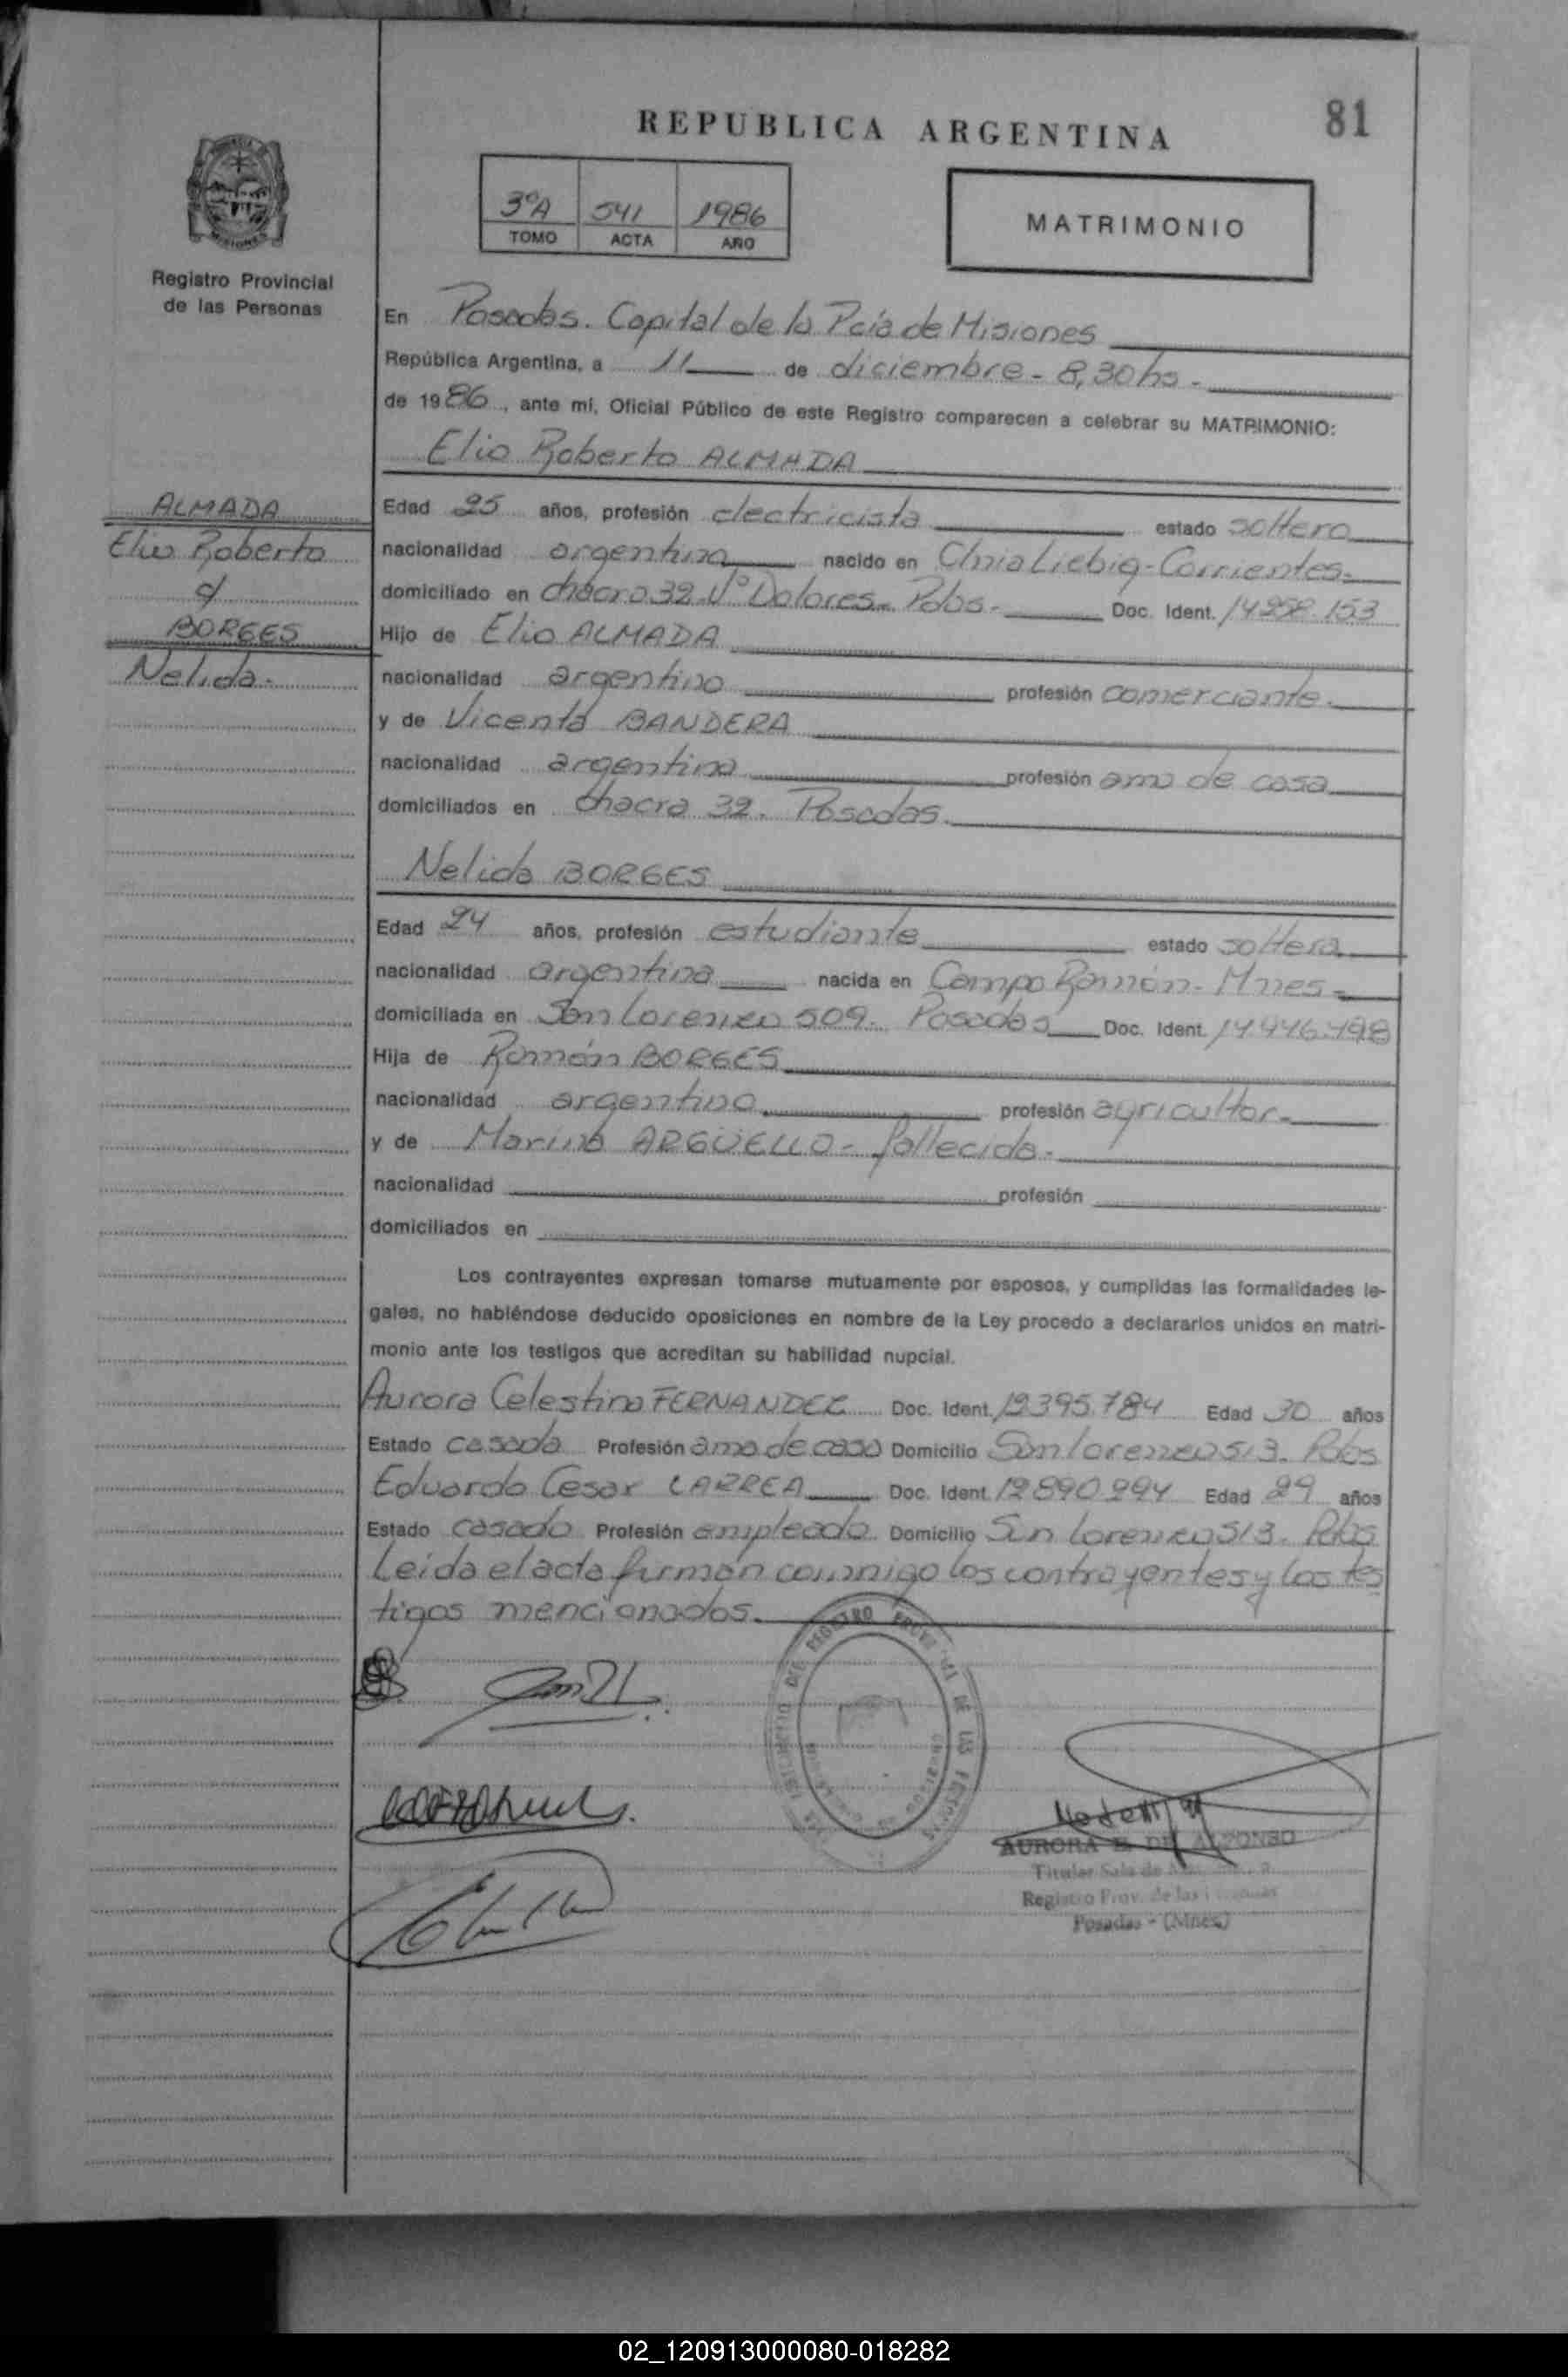 81
REPUBLICA ARGENTINA
3ºA 541 1986
TOMO ACTA AÑO
MATRIMONIO
MISIONES
Registro Provincial
de las Personas
En Posadas. Capital de la Pcia de Misiones
República Argentina, a 11 de diciembre - 8,30 hs -
de 1986, ante mí, Oficial Público de este Registro comparecen a celebrar su MATRIMONIO:
Elio Roberto ALMADA
ALMADA
Elio Roberto
c/
BORGES
Nelida.
Edad 25 años, profesión electricista estado soltero
nacionalidad argentina nacido en Clnia Liebig - Corrientes.
domiciliado en chacra 32 Vº Dolores - Pdas. Doc. Ident. 14.258.153
Hijo de Elio ALMADA
nacionalidad argentino profesión comerciante.
y de Vicenta BANDERA
nacionalidad argentina profesión ama de casa
domiciliados en chacra 32. Posadas.
Nelida BORGES
Edad 24 años, profesión estudiante estado soltera
nacionalidad argentina nacida en Campo Ramón - Mnes -
domiciliada en San Lorenzo 509. Posadas Doc. Ident. 14.946.498
Hija de Ramón BORGES
nacionalidad argentino profesión agricultor
y de Marina ARGÜELLO - fallecida.
nacionalidad profesión
domiciliados en
Los contrayentes expresan tomarse mutuamente por esposos, y cumplidas las formalidades le-
gales, no habiéndose deducido oposiciones en nombre de la Ley procedo a declararlos unidos en matri-
monio ante los testigos que acreditan su habilidad nupcial.
Aurora Celestina FERNANDEZ Doc. Ident. 12.395.784 Edad 30 años
Estado casada Profesión ama de casa Domicilio San Lorenzo 513. Pdas
Eduardo Cesar LARREA Doc. Ident. 12890994 Edad 29 años
Estado casado Profesión empleado Domicilio San Lorenzo 513. Pdas
Leída el acta firman conmigo los contrayentes y los tes
tigos mencionados.
AURORA E. DE ALFONSO
Titular Sala de
Registro Prov. de las
Posadas - (Mnes)
02_120913000080-018282